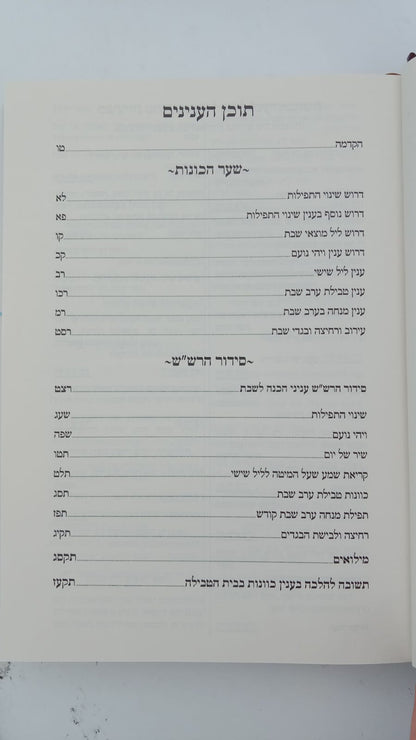 תוכן הענינים
הקדמה טו
~שער הכונות~
דרוש שינוי התפילות לא
דרוש נוסף בענין שינוי התפילות פא
דרוש ליל מוצאי שבת קו
דרוש ענין ויהי נועם קכ
ענין ליל שישי רב
ענין טבילת ערב שבת רכו
ענין מנחה בערב שבת רמ
עירוב ורחיצה ובגדי שבת רסט
~סידור הרש"ש~
סידור הרש"ש עניני הכנה לשבת רצט
שינוי התפילות שעג
ויהי נועם שפה
שיר של יום תטו
קריאת שמע שעל המיטה לליל שישי תלט
כוונות טבילת ערב שבת תסג
תפילת מנחה ערב שבת קודש תפז
רחיצה ולבישת הבגדים תקיג
מילואים תקסג
תשובה להלכה בענין כוונות בבית הטבילה תקעז